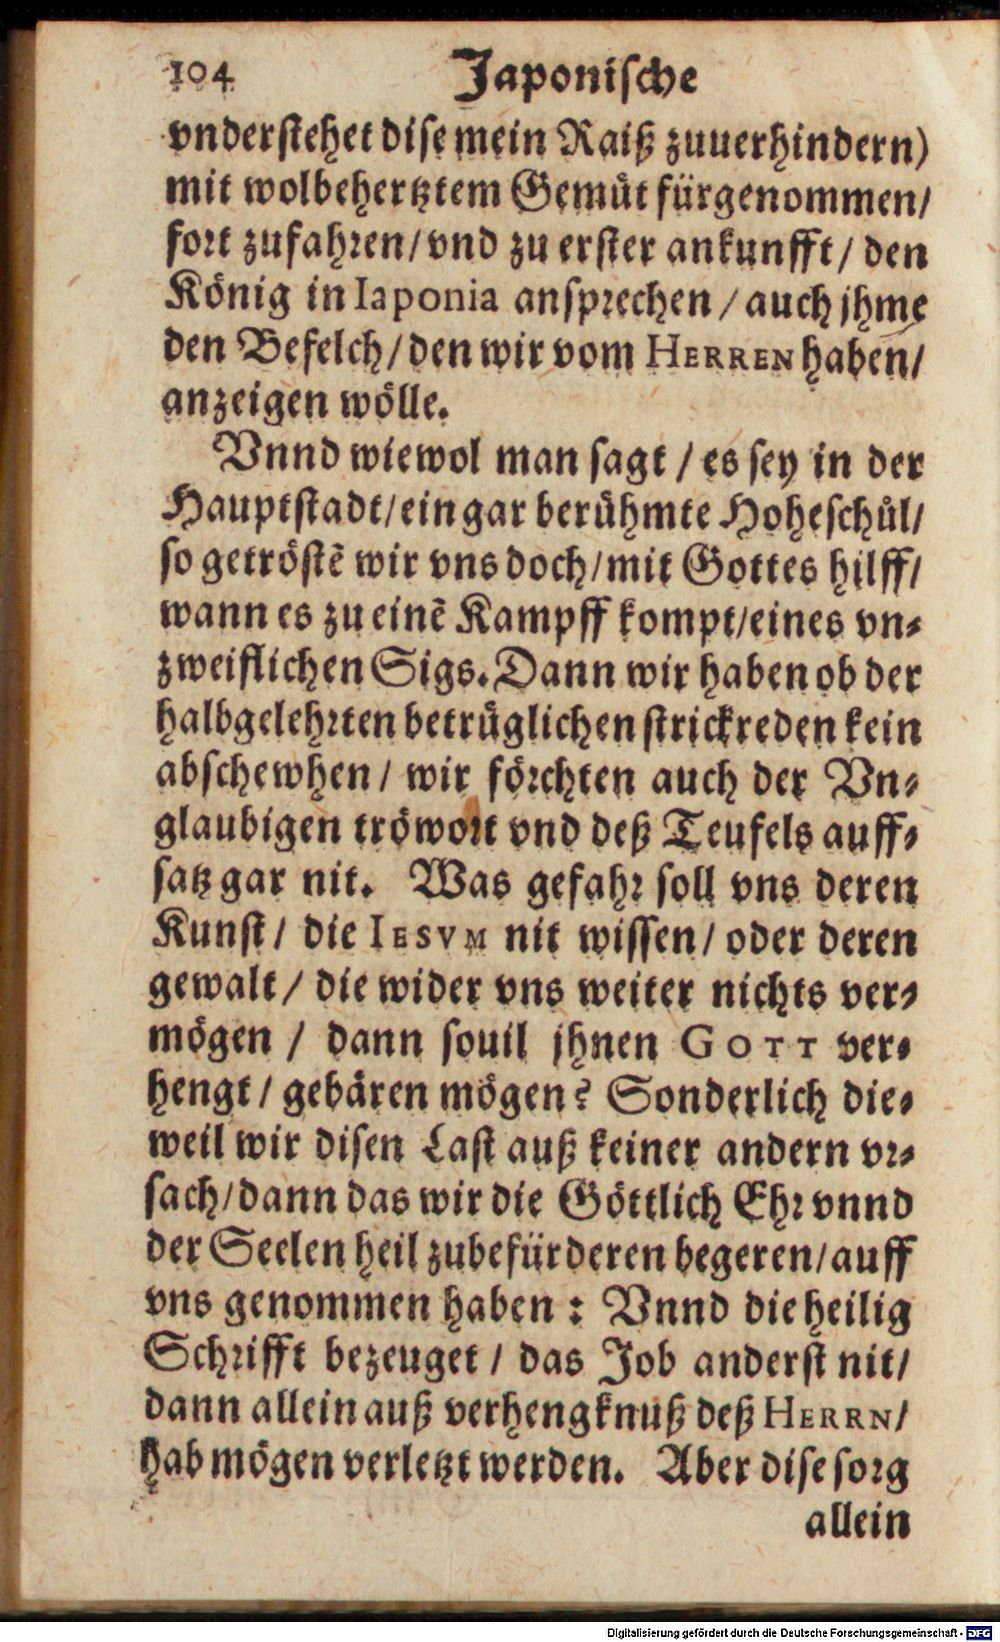 104 Japonische
vnderstehet dise mein Raiß zuuerhindern)
mit wolbehertztem Gemüt fürgenommen/
fort zufahren/vnd zu erster ankunfft/ den
König in Iaponia ansprechen / auch jhme
den Befelch/den wir vom HERREN haben/
anzeigen wölle.
Vnnd wiewol man sagt / es sey in der
Hauptstadt/ein gar berühmte Hoheschůl/
so getröstẽ wir vns doch/mit Gottes hilff/
wann es zu einẽ Kampff kompt/eines vn-
zweiflichen Sigs. Dann wir haben ob der
halbgelehrten betrüglichen strickreden kein
abschewhen/ wir förchten auch der Vn-
glaubigen tröwort vnd deß Teufels auff-
satz gar nit. Was gefahr soll vns deren
Kunst/ die IESVM nit wissen/ oder deren
gewalt/ die wider vns weiter nichts ver-
mögen / dann souil jhnen GOTT ver-
hengt/ gebären mögen? Sonderlich die-
weil wir disen Last auß keiner andern vr-
sach/dann das wir die Göttlich Ehr vnnd
der Seelen heil zubefürderen begeren/auff
vns genommen haben: Vnnd die heilig
Schrifft bezeuget/ das Job anderst nit/
dann allein auß verhengknuß deß HERRN/
hab mögen verletzt werden. Aber dise sorg
allein
Digitalisierung gefördert durch die Deutsche Forschungsgemeinschaft - DFG